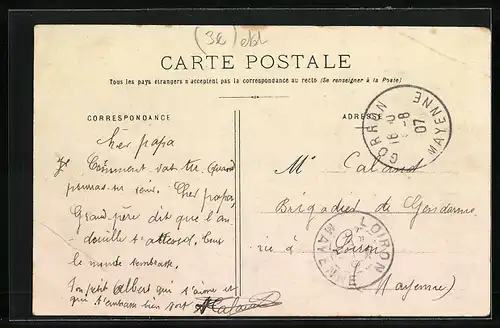 (3e) 
CARTE POSTALE
Tous les pays étrangers n'acceptent pas la correspondance au recto (Se renseigner à la Poste)
CORRESPONDANCE
ADRESSE
cher papa
Je Comment vas tu. Quand
pourras-tu venir. Cher papa
Grand-père dit que l'an-
douille t'attend. Tout
le monde t'embrasse.
Ton petit Albert qui t'aime et
qui t'embrasse bien fort
Mr
Brigadier de Gendarme
rie à Loiron
(Mayenne)
GORRON
MAYENNE
8
07
LOIRON
MAYENNE